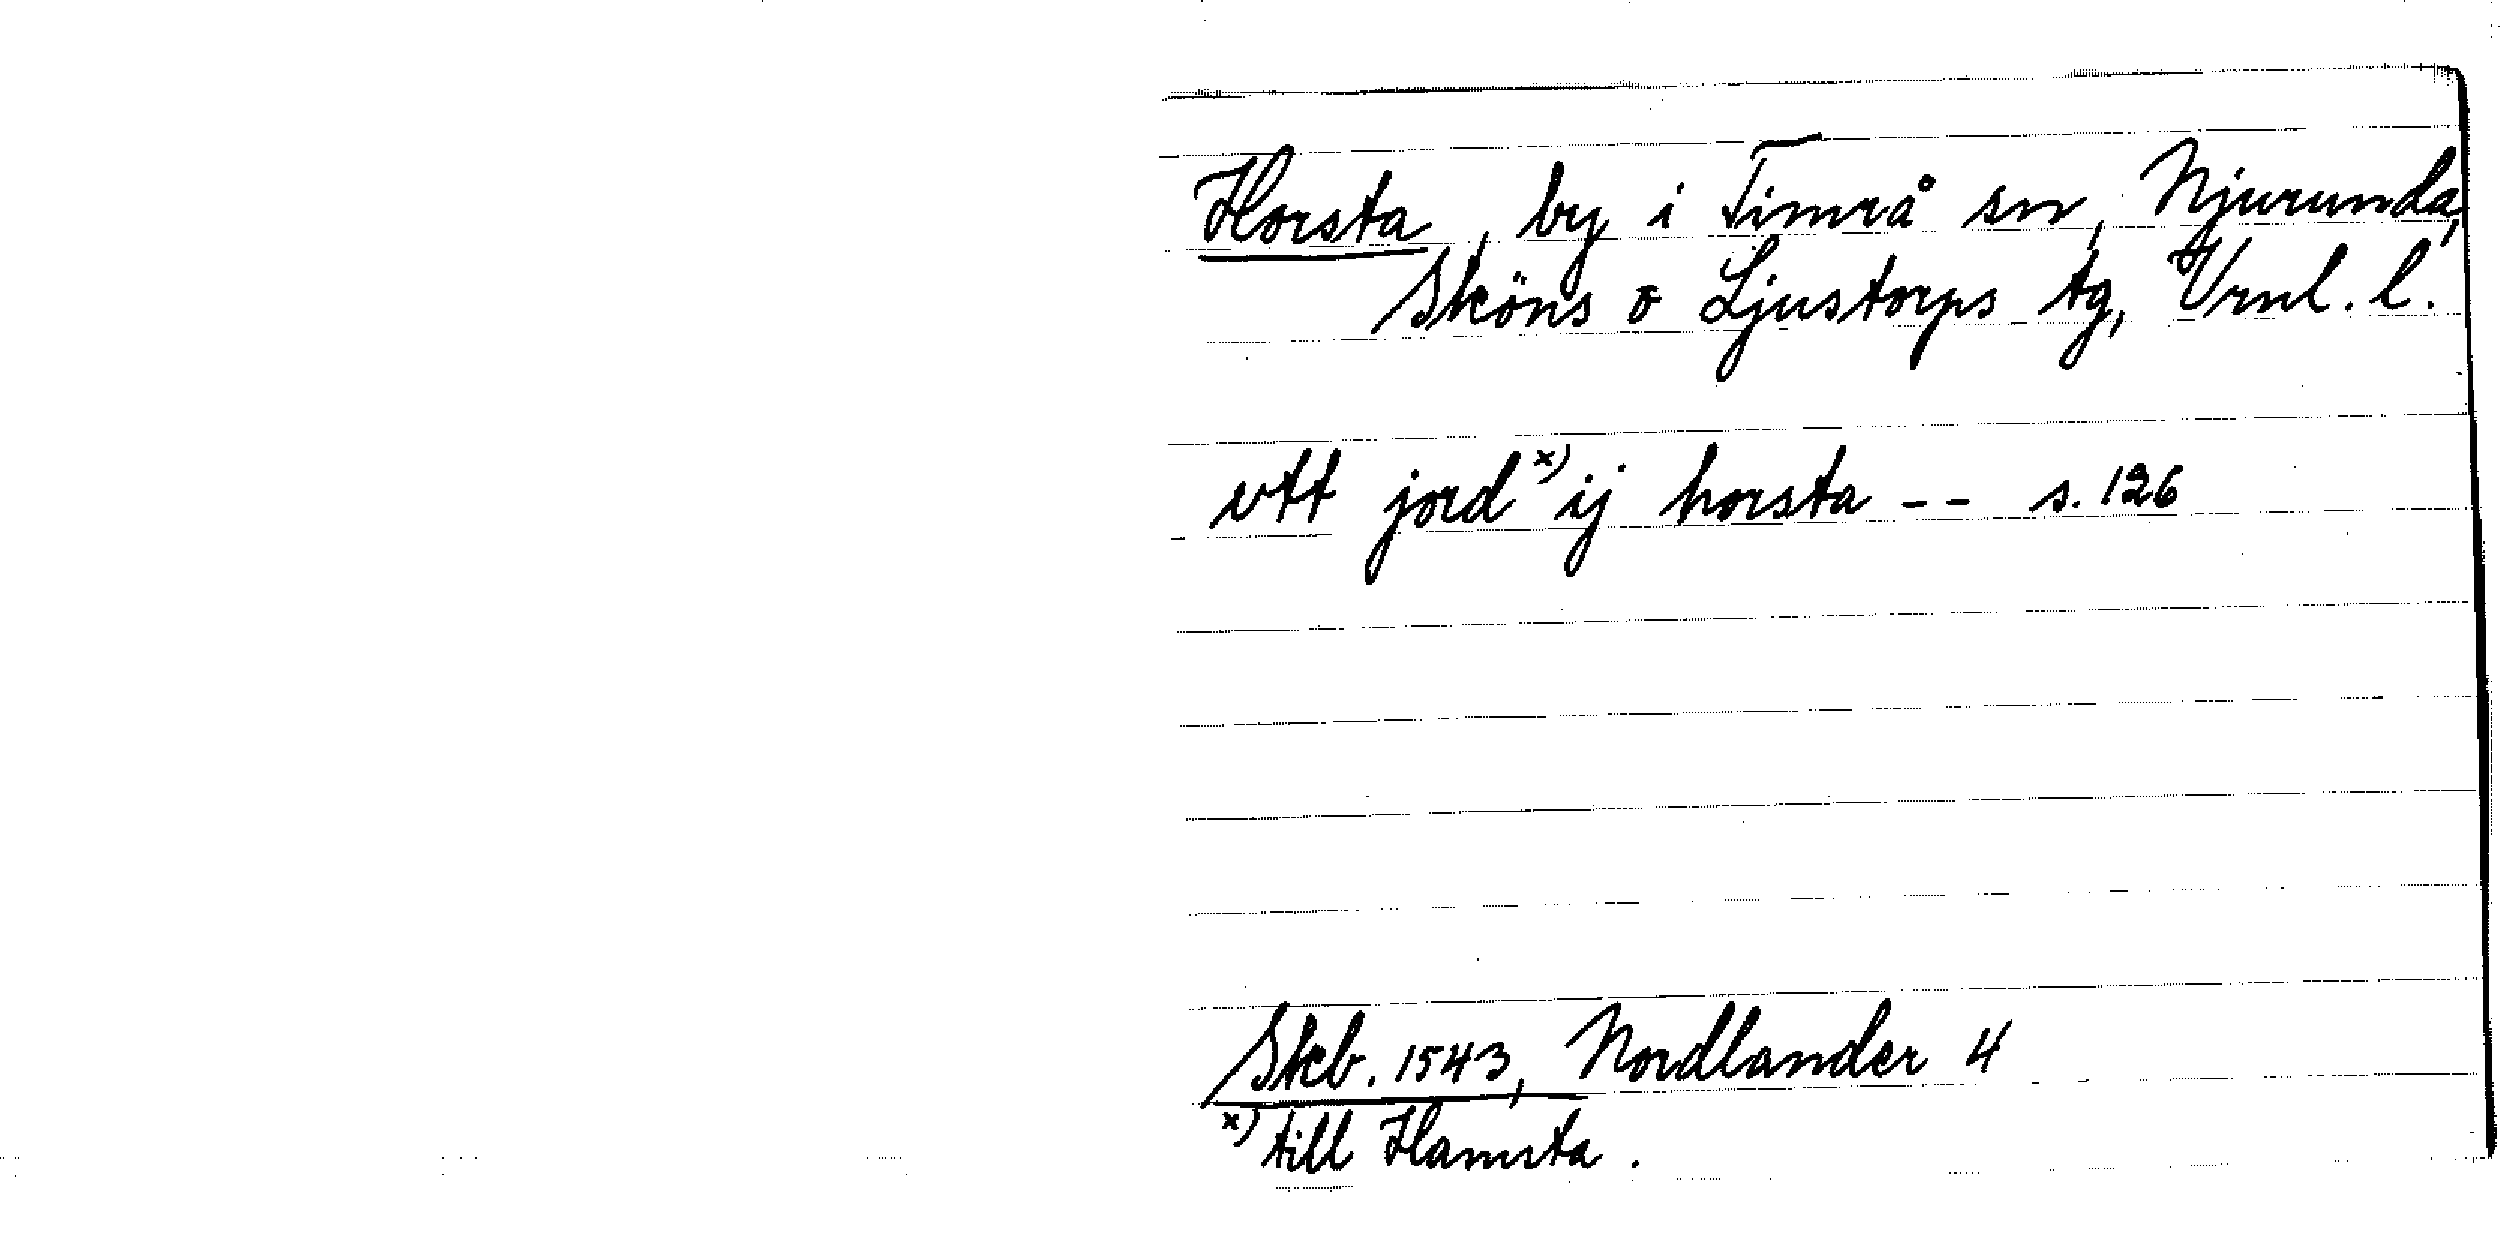 Horsta, by i Timrå sn, Njurunda,
Sköns o Ljustorps tg, Vrnl. l.
vtt jord x) ij horsta -- s. 126
Skb. 1543, Nordlander 4
x) till Hamsta.